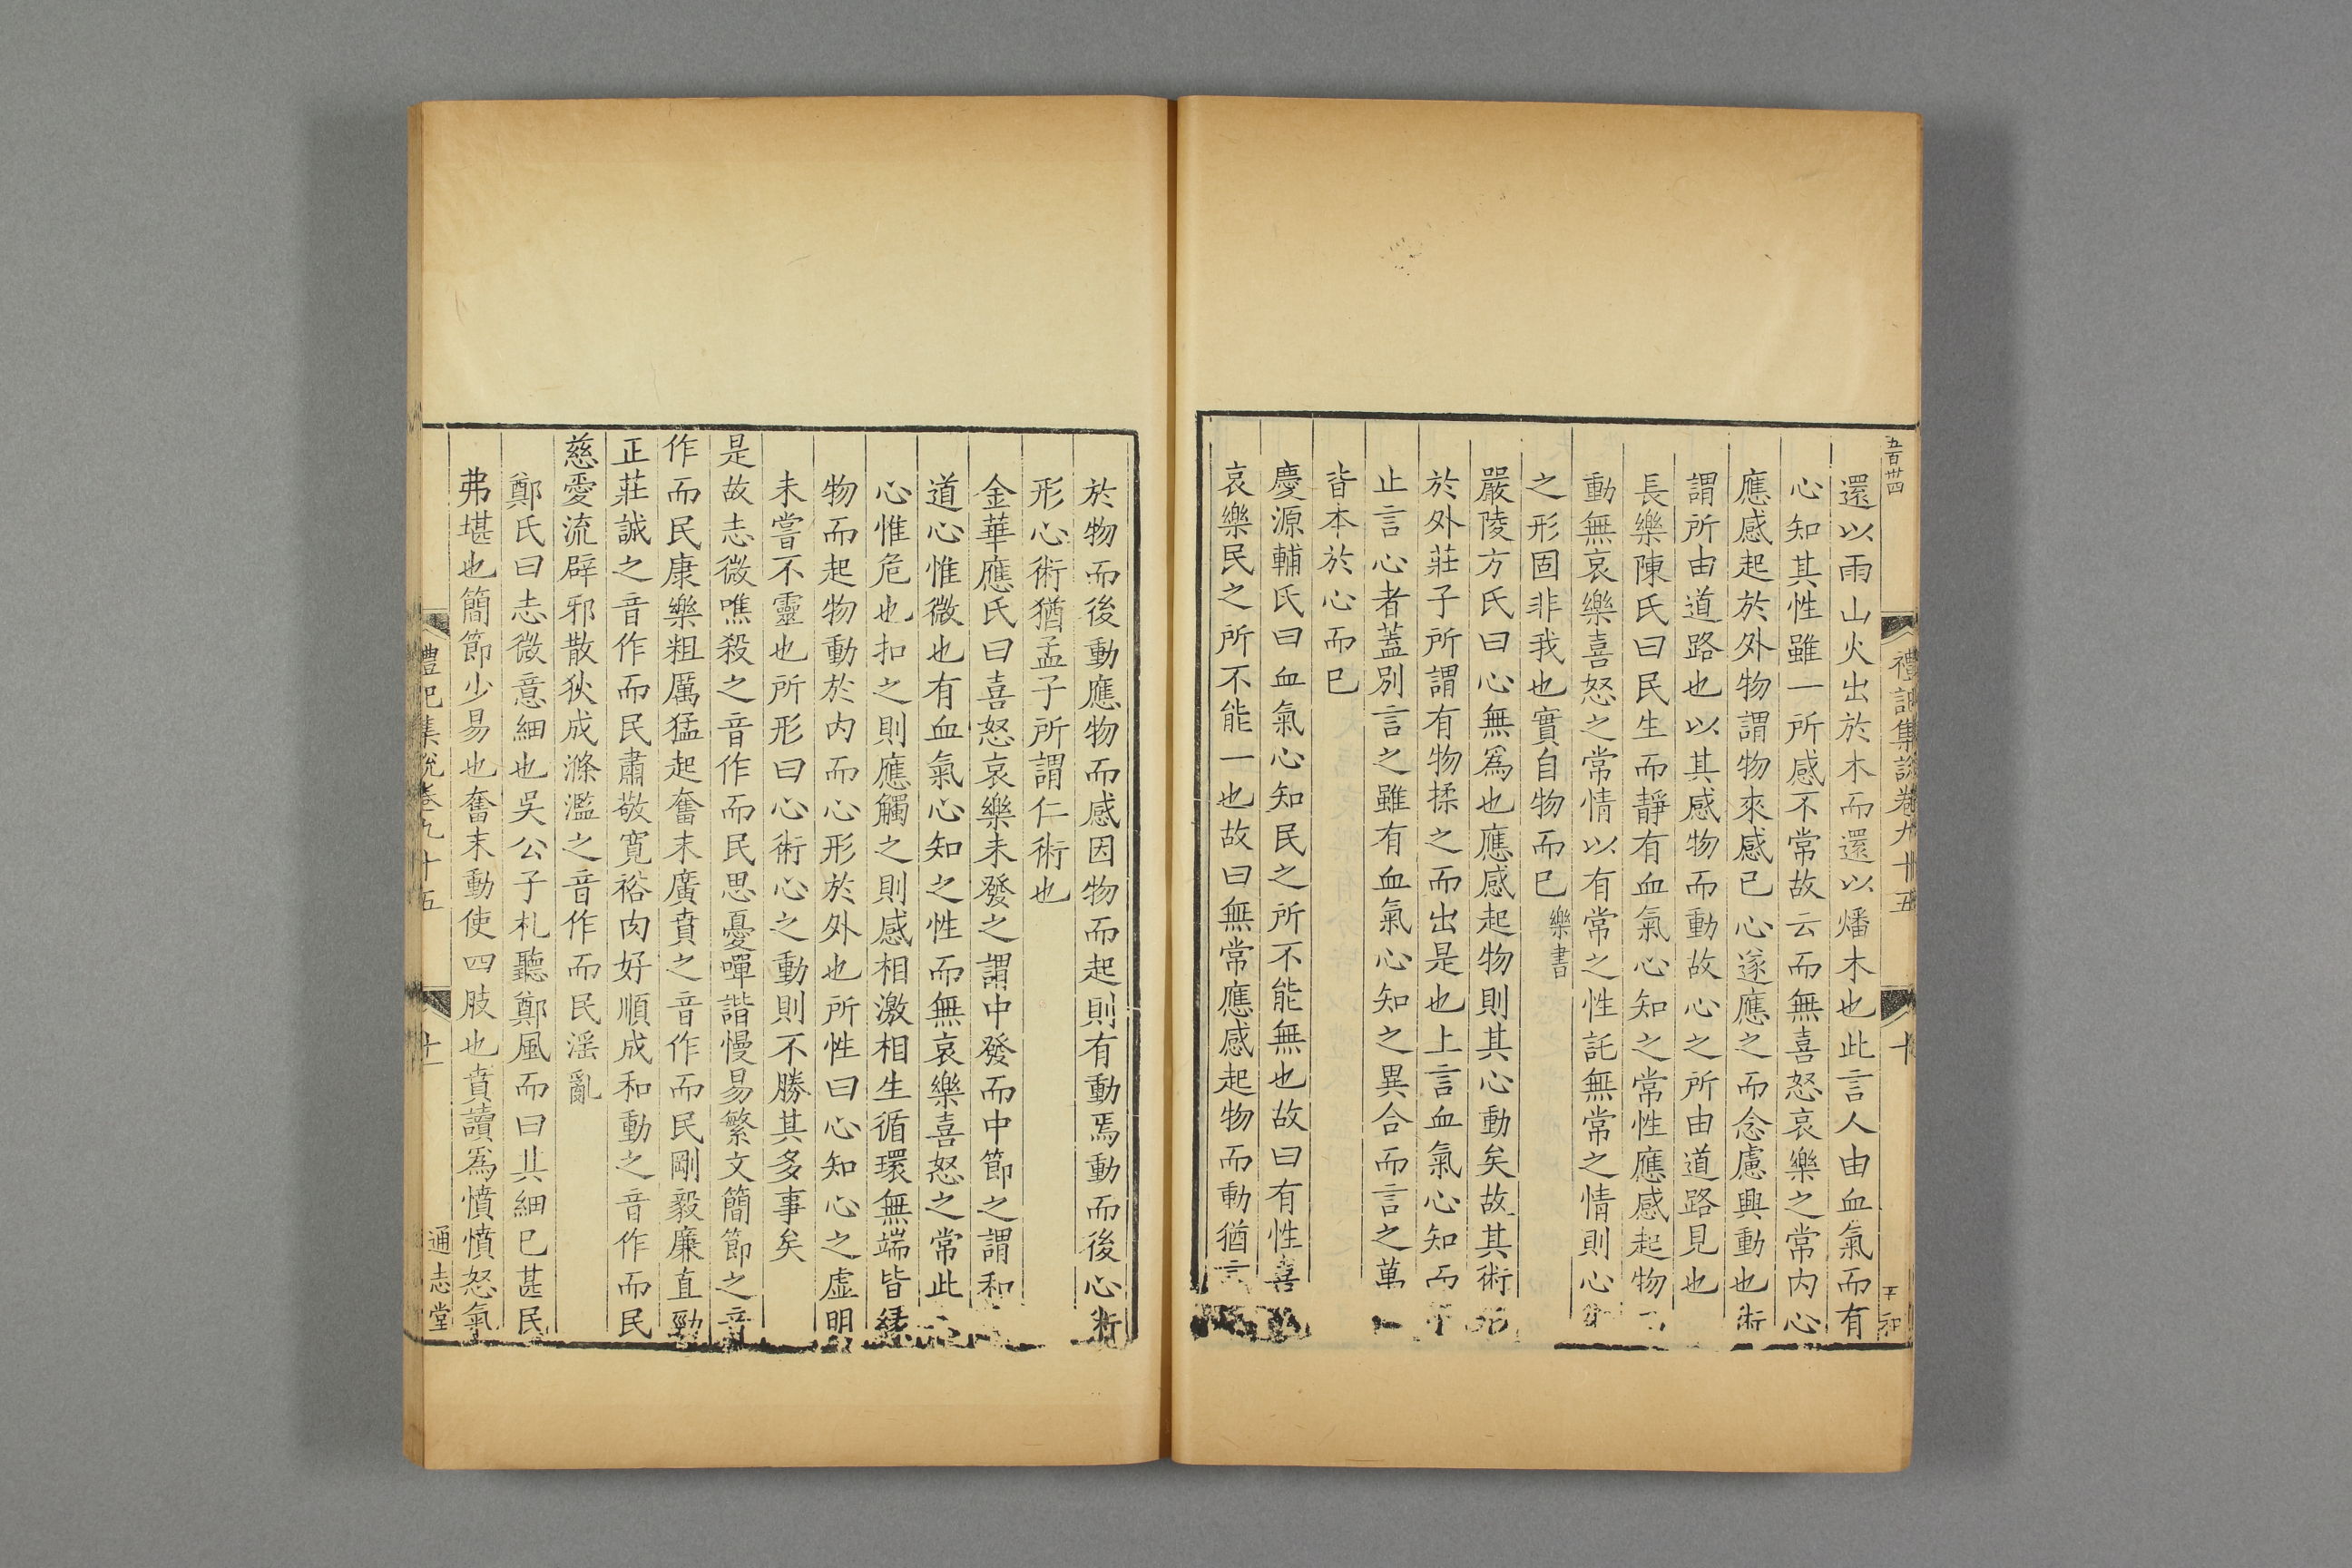 五百卌四
禮記集說卷九十五
十
還以雨山火出於木而還以燔木也此言人由血氣而有
心知其性雖一所感不常故云而無喜怒哀樂之常内心
應感起於外物謂物來感己心遂應之而念慮興動也術
謂所由道路也以其感物而動故心之所由道路見也
長樂陳氏曰民生而靜有血氣心知之常性應感起物
動無哀樂喜怒之常情以有常之性託無常之情則心
之形固非我也實自物而已樂書
嚴陵方氏曰心無爲也應感起物則其心動矣故其術
於外莊子所謂有物揉之而出是也上言血氣心知而
止言心者蓋別言之雖有血氣心知之異合而言之萬
皆本於心而已
慶源輔氏曰血氣心知民之所不能無也故曰有性喜
哀樂民之所不能一也故曰無常應感起物而動猶言
於物而後動應物而感因物而起則有動焉動而後心術
形心術猶孟子所謂仁術也
金華應氏曰喜怒哀樂未發之謂中發而中節之謂和
道心惟微也有血氣心知之性而無哀樂喜怒之常此
心惟危也扣之則應觸之則感相激相生循環無端皆緣
物而起物動於内而心形於外也所性曰心知心之虛明
未嘗不靈也所形曰心術心之動則不勝其多事矣
是故志微噍殺之音作而民思憂嘽諧慢易繁文簡節之音
作而民康樂粗厲猛起奮末廣賁之音作而民剛毅廉直勁
正莊誠之音作而民肅敬寬裕肉好順成和動之音作而民
慈愛流辟邪散狄成滌濫之音作而民淫亂
鄭氏曰志微意細也吳公子札聽鄭風而曰其細已甚民
弗堪也簡節少易也奮末動使四肢也賁讀爲憤憤怒氣
禮記集說卷九十五
十一
通志堂